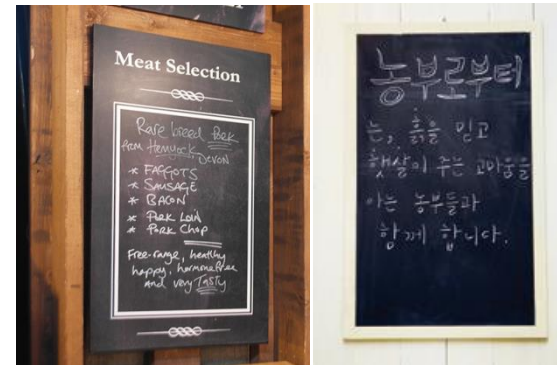 Meat Selection
Rare breed Pork
from Hemyock, DEVON
* FAGGOTS
* SAUSAGE
* BACON
* Pork Loin
* Pork Chop
Free-range, healthy
happy, hormone free
and very Tasty
농부로부터
는, 흙을 믿고
햇살이 주는 고마움을
아는 농부들과
함께 합니다.